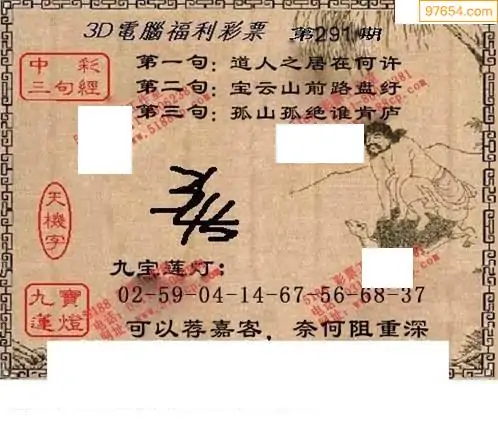 97654.com
3D電腦福利彩票 第291期
中彩
三句經
第一句：道人之居在何许
第二句：宝云山前路盘纡
第三句：孤山孤绝谁肯庐
天機字
九宝莲灯：
九寶
蓮燈
02-59-04-14-67-56-68-37
可以荐嘉客，奈何阻重深